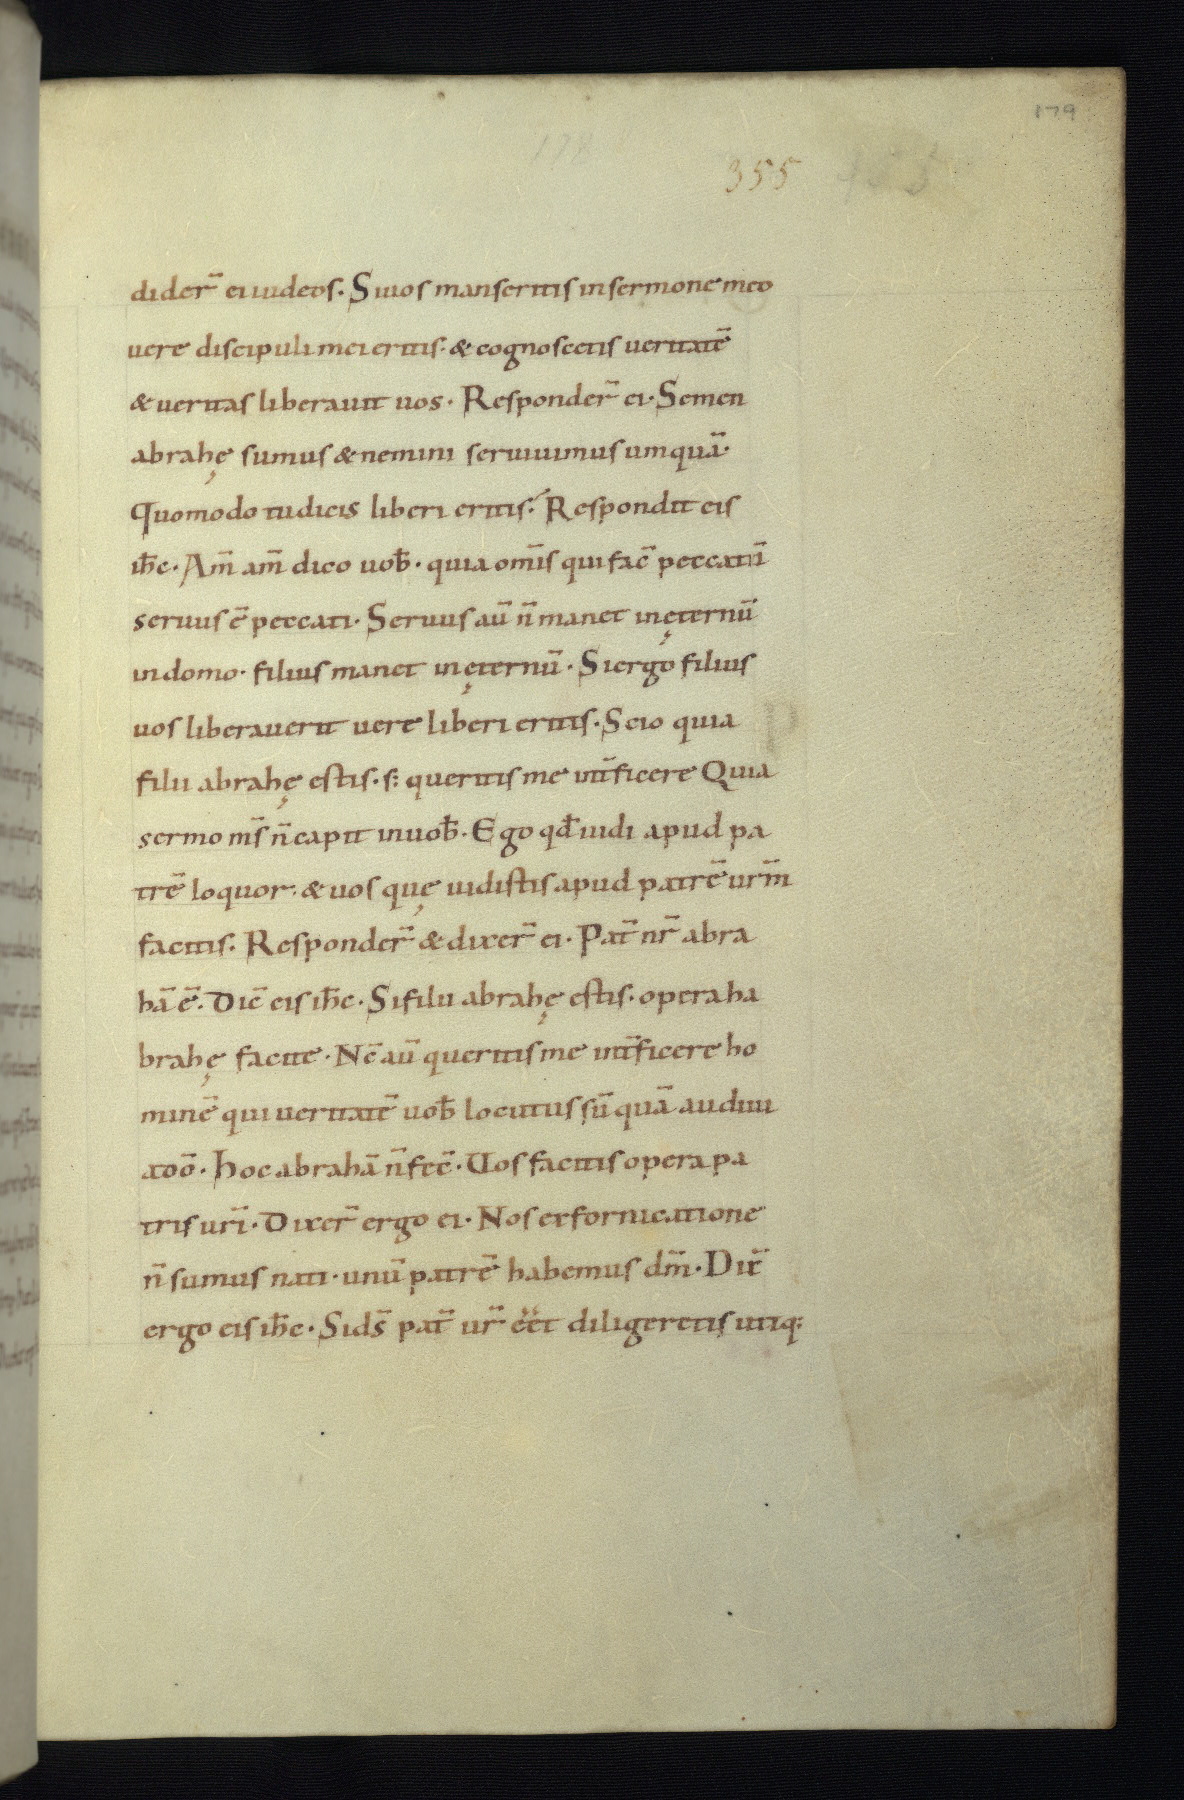 179
178
355
dider̄ ei iudeos. Si uos manseritis in sermone meo
uere discipuli mei eritis. & cognoscetis ueritatē
& ueritas liberauit uos. Responder̄ ei. Semen
abrahę sumus & nemini seruiuimus umquā.
Quomodo tu dicis liberi eritis? Respondit eis
ih̄c. Am̄ am̄ dico uob̄. quia om̄is qui fac̄ peccatū
seruus ē peccati. Seruus aū n̄ manet in ęternū
in domo. filius manet in ęternū. Si ergo filius
uos liberauerit uere liberi eritis. Scio quia
filii abrahę estis. s; queritis me int̄ficere Quia
sermo m̄s n̄ capit in uob̄. Ego qd̄ uidi apud pa
trē loquor. & uos quę uidistis apud patrē urm̄
facitis. Responder̄ & dixer̄ ei. Pat̄ nr̄ abra
hā ē. Dic̄ eis ih̄c. Si filii abrahę estis. opera ha
brahę facite. Nc̄ aū queritis me int̄ficere ho
minē qui ueritatē uob̄ locutus sū quā audiui
a dō. Hoc abrahā n̄ fec̄. Uos facitis opera pa
tris ur̄i. Dixer̄ ergo ei. Nos ex fornicatione
n̄ sumus nati. unū patrē habemus dm̄. Dix̄
ergo eis ih̄c. Si ds̄ pat̄ ur̄ ēēt diligeretis utiq;